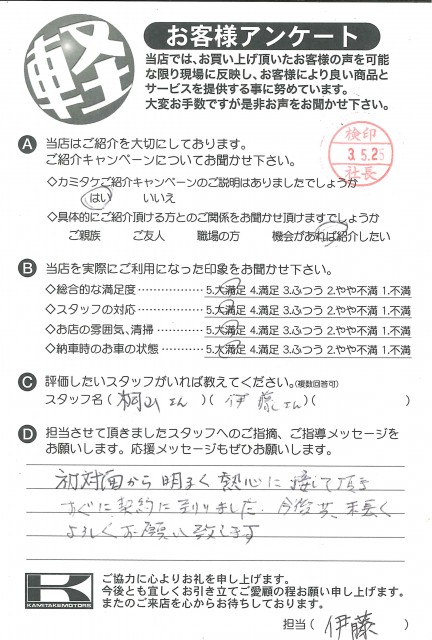 軽
お客様アンケート
当店では、お買い上げ頂いたお客様の声を可能
な限り現場に反映し、お客様により良い商品と
サービスを提供する事に努めています。
大変お手数ですが是非お声をお聞かせ下さい。
検印
3.5.25
社長
A 当店はご紹介を大切にしております。
ご紹介キャンペーンについてお聞かせ下さい。
◇カミタケご紹介キャンペーンのご説明はありましたでしょうか
はい いいえ
◇具体的にご紹介頂ける方とのご関係をお聞かせ頂けますでしょうか
ご親族 ご友人 職場の方 機会があれば紹介したい
B 当店を実際にご利用になった印象をお聞かせ下さい。
◇総合的な満足度 5.大満足 4.満足 3.ふつう 2.やや不満 1.不満
◇スタッフの対応 5.大満足 4.満足 3.ふつう 2.やや不満 1.不満
◇お店の雰囲気、清掃 5.大満足 4.満足 3.ふつう 2.やや不満 1.不満
◇納車時のお車の状態 5.大満足 4.満足 3.ふつう 2.やや不満 1.不満
C 評価したいスタッフがいれば教えてください。(複数回答可)
スタッフ名(桐山さん)(伊藤さん)( )
D 担当させて頂きましたスタッフへのご指摘、ご指導メッセージを
お願いします。応援メッセージもぜひお願いします。
初対面から明るく熱心に接して頂き
すぐに契約に到りました。今後共末長く
よろしくお願い致します
K
KAMITAKE MOTORS
ご協力に心よりお礼を申し上げます。
今後とも宜しくお引き立てご愛顧の程お願い申し上げます。
またのご来店を心からお待ちしております。
担当(伊藤)